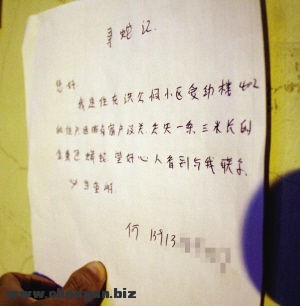 寻蛇记
您好
我是住在洪公祠小区爱幼楼402
的住户因搬家窗户没关走失一条三米长的
金黄色蟒蛇望好心人看到与我联系
必当重谢
何 13913
www. .biz